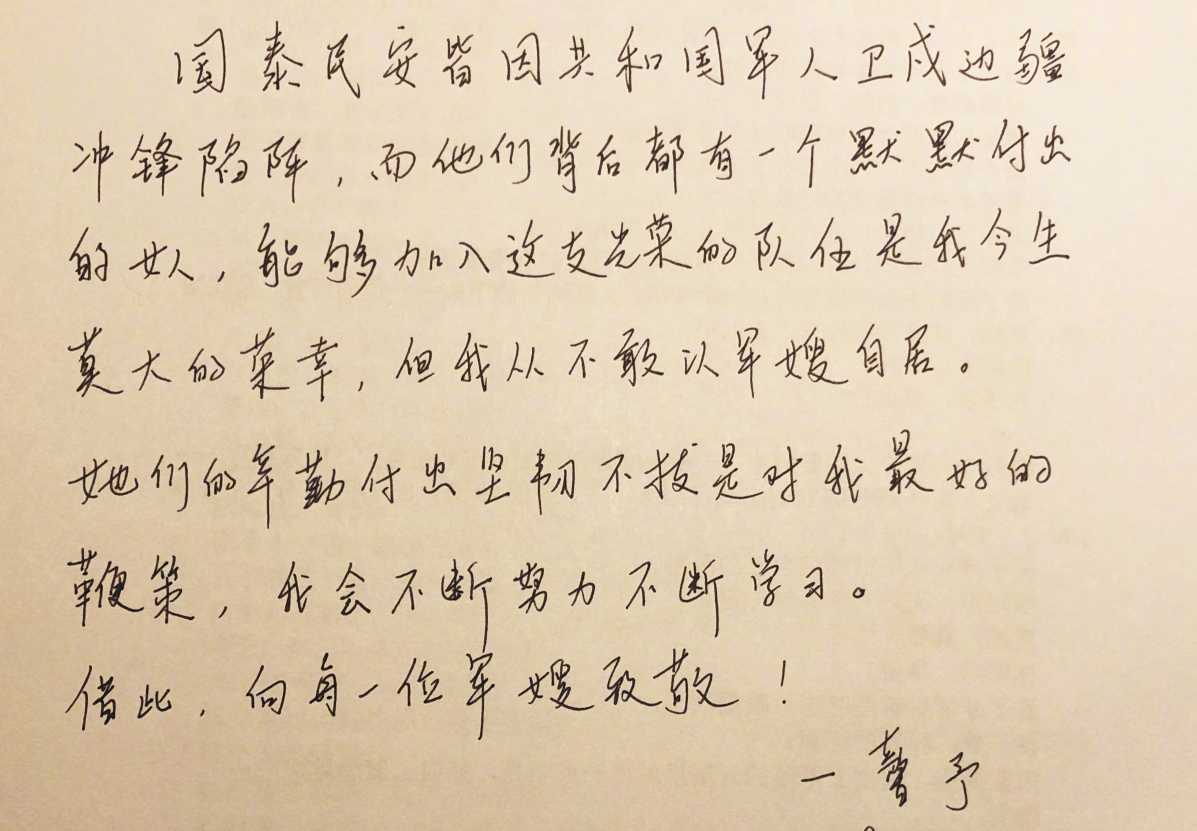 国泰民安皆因共和国军人卫戍边疆
冲锋陷阵，而他们背后都有一个默默付出
的女人，能够加入这支光荣的队伍是我今生
莫大的荣幸，但我从不敢以军嫂自居。
她们的辛勤付出坚韧不拔是对我最好的
鞭策，我会不断努力不断学习。
借此，向每一位军嫂致敬！
一馨予